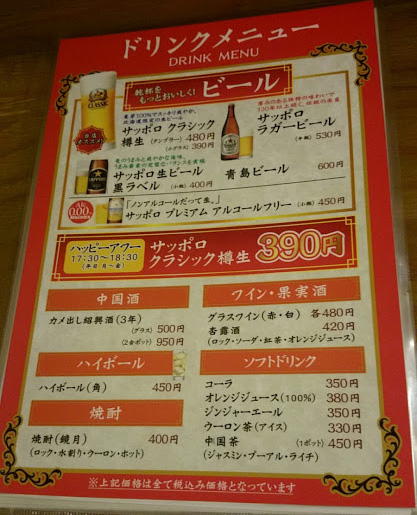 ドリンクメニュー
DRINK MENU
乾杯を
もっとおいしく!
ビール
CLASSIC
当店
オススメ!
麦芽100%ですっきり爽やか。
北海道限定の生ビール
サッポロ クラシック
樽生 (タンブラー) 480円
(小グラス) 390円
厚みのある独特の味わいで
サッポロ
ラガービール
(中瓶) 530円
麦のうまみと爽やかな後味。
サッポロ生ビール
黒ラベル (小瓶) 400円
青島ビール 600円
Alc.
0.00%
「ノンアルコールだって生。」
サッポロ プレミアム アルコールフリー (小瓶) 450円
ハッピーアワー
17:30~18:30
(平日 月~金)
サッポロ
クラシック樽生 390円
中国酒
カメ出し紹興酒(3年)
(グラス) 500円
(2合ポット) 950円
ハイボール
ハイボール(角) 450円
焼酎
焼酎(鏡月) 400円
(ロック・水割り・ウーロン・ホット)
ワイン・果実酒
グラスワイン(赤・白) 各480円
杏露酒 420円
(ロック・ソーダ・紅茶・オレンジジュース)
ソフトドリンク
コーラ 350円
オレンジジュース(100%) 380円
ジンジャーエール 350円
ウーロン茶(アイス) 330円
中国茶 (1ポット) 450円
(ジャスミン・プーアル・ライチ)
※上記価格は全て税込み価格となっています